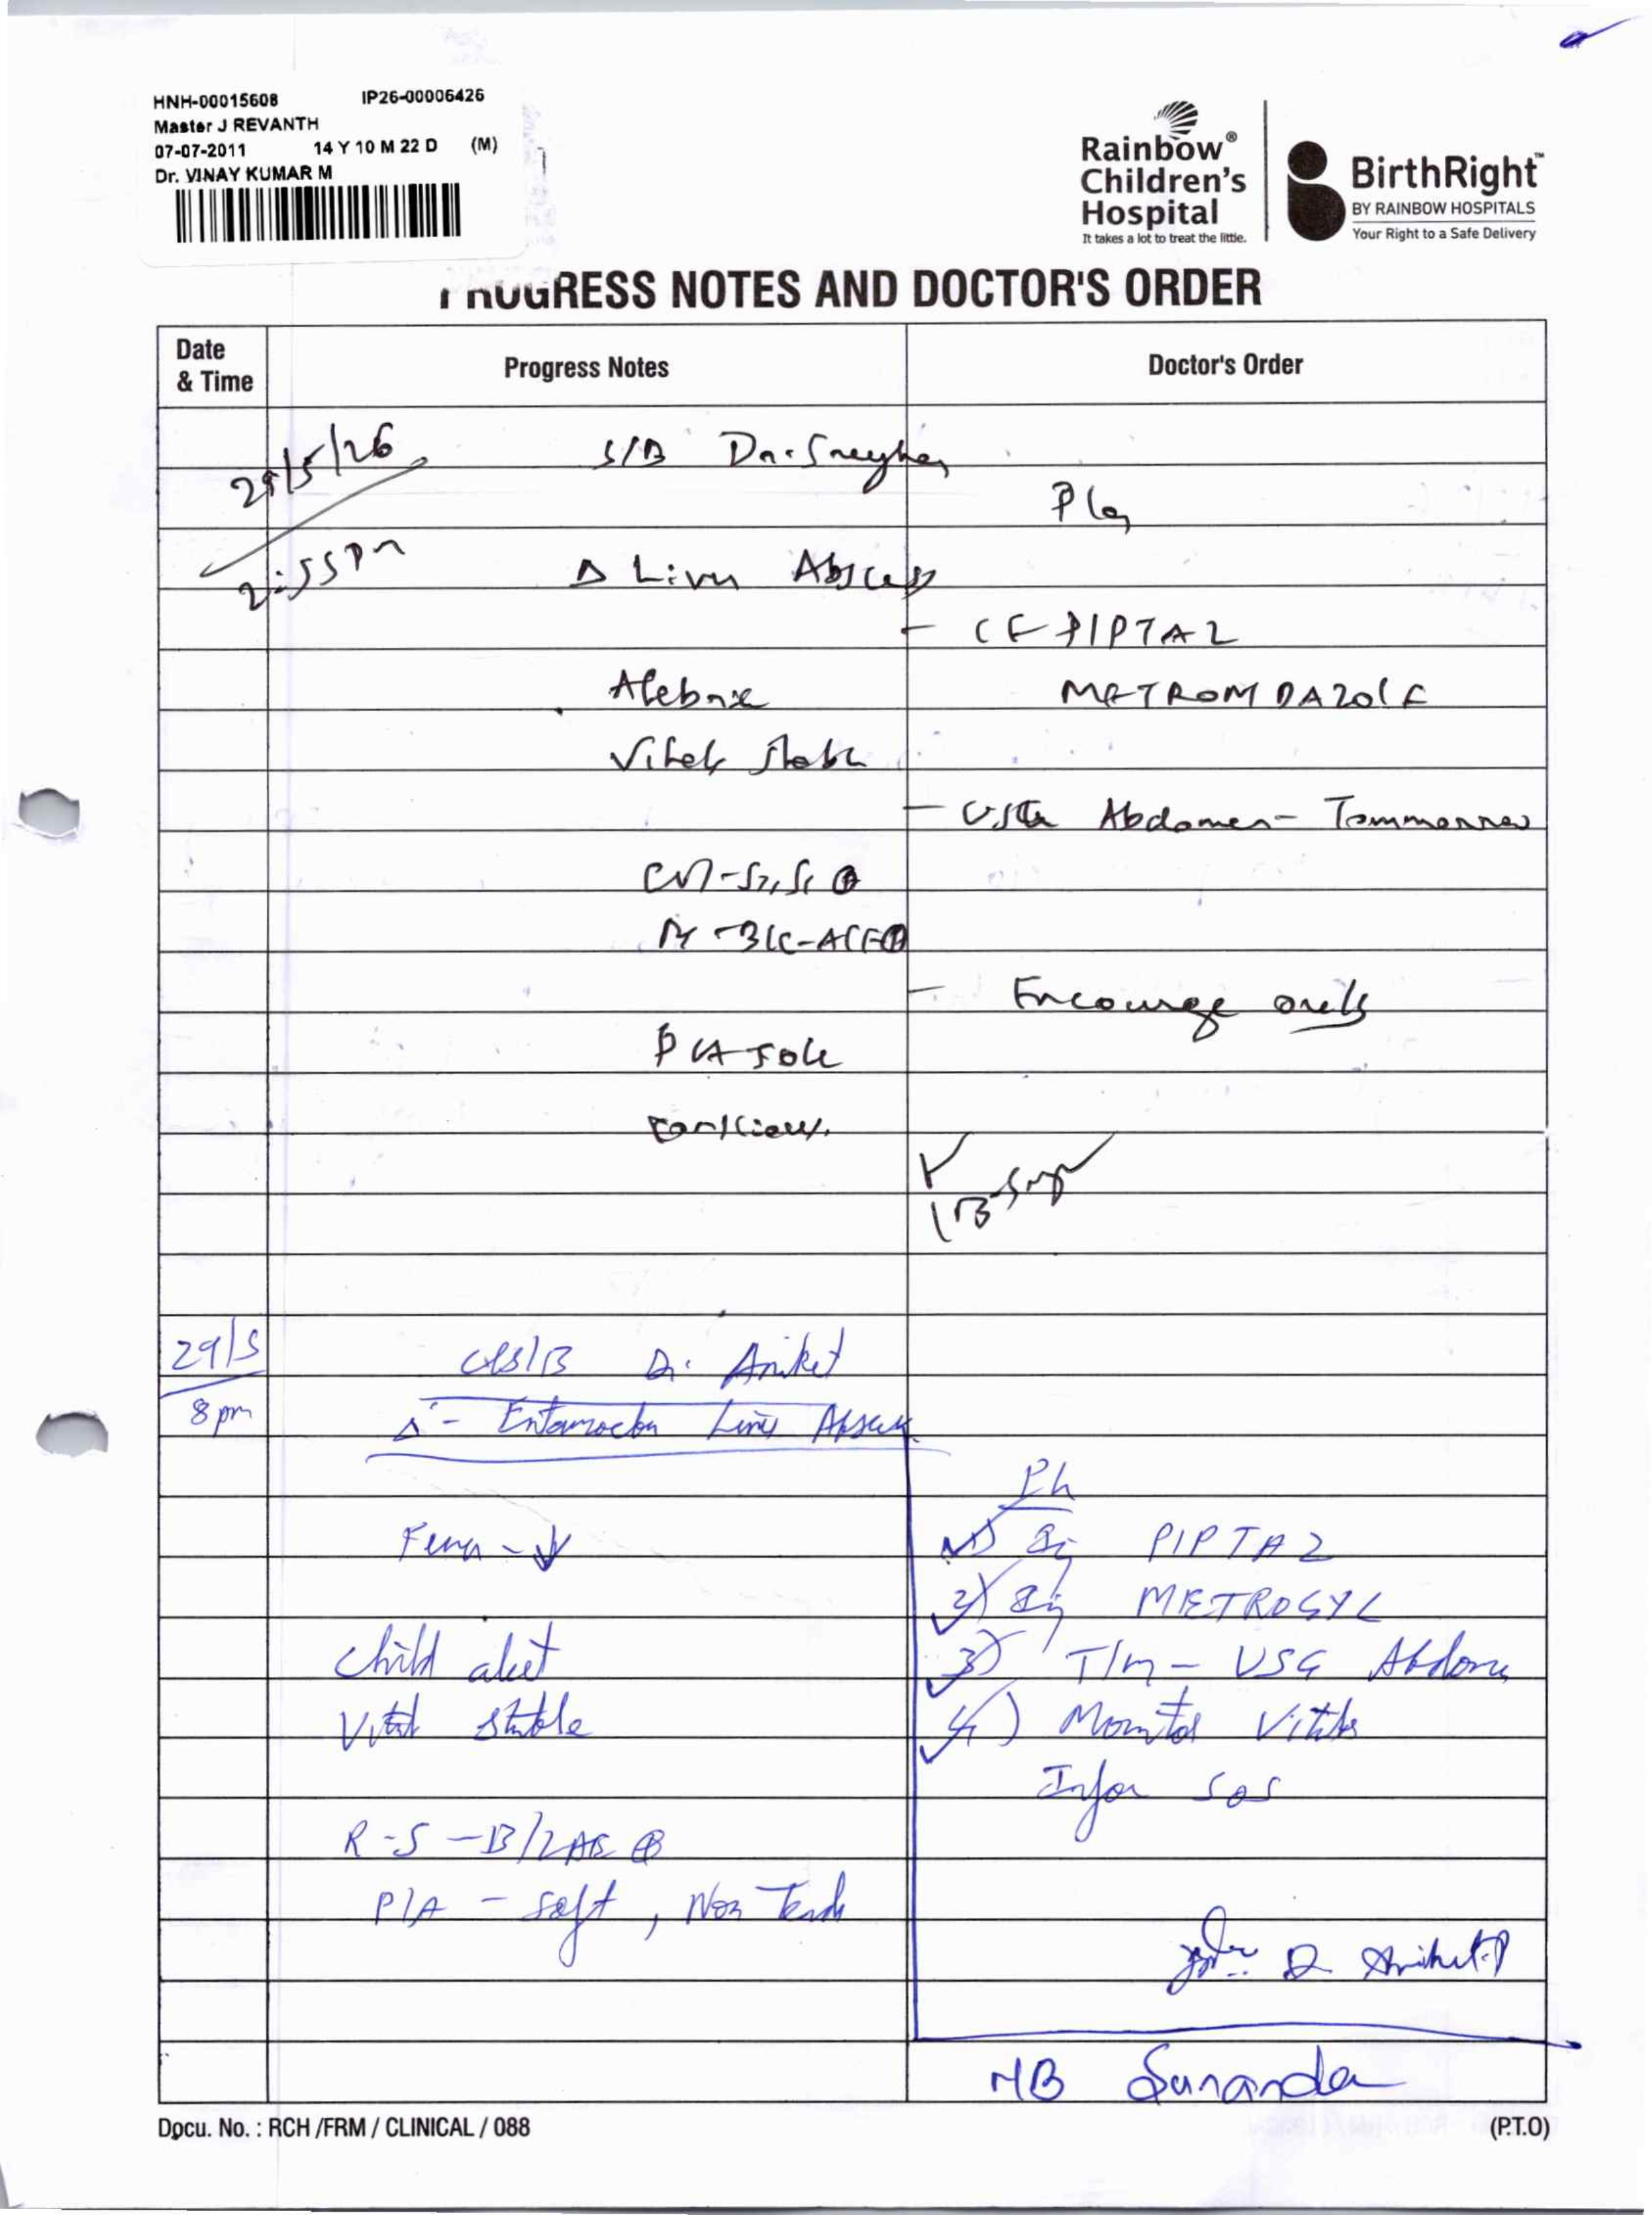 HNH-00015608 IP26-00006426
Master J REVANTH
07-07-2011 14 Y 10 M 22 D (M)
Dr. VINAY KUMAR M
Rainbow®
Children's
Hospital
It takes a lot to treat the little.
BirthRight™
BY RAINBOW HOSPITALS
Your Right to a Safe Delivery
PROGRESS NOTES AND DOCTOR'S ORDER
Date & Time Progress Notes Doctor's Order
29/5/26 S/B Dr.
2:55 pm
Δ Liver Abscess
PIPTAZ
Afebrile METRONIDAZOLE
Vitals stable
- USG Abdomen - Tommorrow
CVS - S1, S2 ⊕
- Encourage orals
P/A soft
29/5 Dr. Aniket
8 pm Δ - Entamoeba Liver Abscess
Fever - ↓ 1) Inj PIPTAZ
2) Inj METROGYL
Child alert 3) T/m - USG Abdomen
Vital stable 4) Monitor Vitals
Infor SOS
R-S - B/L AE ⊕
P/A - soft, Non Tender
Dr Aniket.P
NB Sunanda
Docu. No. : RCH /FRM / CLINICAL / 088 (P.T.O)